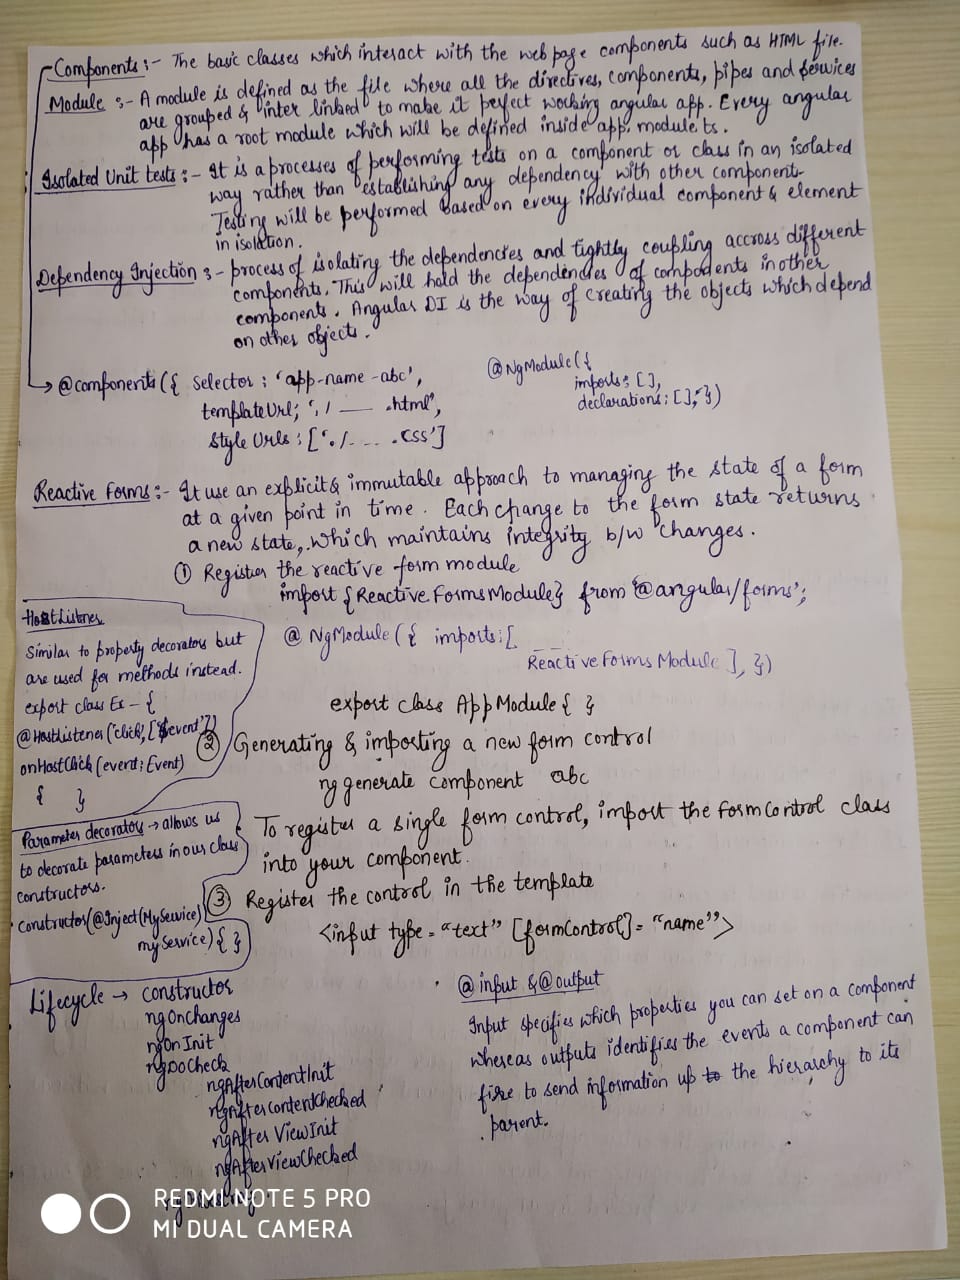 Components :- The basic classes which interact with the web page components such as HTML file.
Module :- A module is defined as the file where all the directives, components, pipes and services
are grouped & inter linked to make it perfect working angular app. Every angular
app has a root module which will be defined inside app.module.ts.
Isolated Unit tests :- It is a processes of performing tests on a component or class in an isolated
way rather than establishing any dependency with other component.
Testing will be performed based on every individual component & element
in isolation.
Dependency Injection :- process of isolating the dependencies and tightly coupling accross different
components. This will hold the dependencies of components in other
components. Angular DI is the way of creating the objects which depend
on other objects.
@components({ selector : 'app-name-abc',
templateUrl; './ ___ .html',
style Urls : ['./- --- .css']
@NgModule({
imports: [],
declarations: [], })
Reactive forms :- It use an explicit & immutable approach to managing the state of a form
at a given point in time. Each change to the form state returns
a new state, which maintains integrity b/w changes.
① Register the reactive form module
import {ReactiveFormsModule} from '@angular/forms';
@ NgModule({ imports: [
ReactiveForms Module ], })
export class AppModule { }
② Generating & importing a new form control
ng generate component abc
To register a single form control, import the formControl class
into your component.
③ Register the control in the template
<input type = "text" [formControl] = "name">
HostListner
Similar to property decorators but
are used for methods instead.
export class Ex - {
@HostListener('click', ['$event'])
onHostClick (event: Event)
{ }
Parameter decorators → allows us
to decorate parameters in our class
constructors.
constructor(@Inject(MyService)
myService) { }
Lifecycle → constructor
ngOnchanges
ngOnInit
ngDoCheck
ngAfterContentInit
ngAfterContentChecked
ngAfter ViewInit
ngAfterViewChecked
@ input & @ output
Input specifies which properties you can set on a component
whereas outputs identifies the events a component can
fire to send information up to the hierarchy to its
parent.
REDMI NOTE 5 PRO
MI DUAL CAMERA